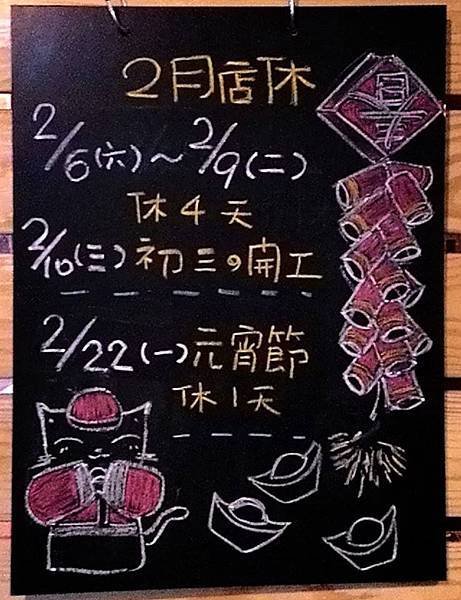 2月店休
2/6(六)～2/9(二)
休4天
2/10(三)初三の開工
2/22(一)元宵節
休1天